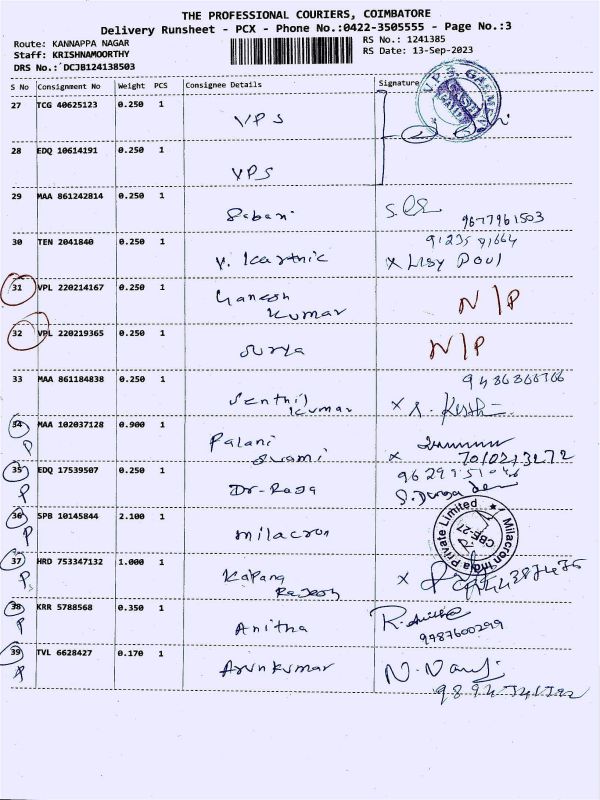 THE PROFESSIONAL COURIERS, COIMBATORE
Delivery Runsheet - PCX - Phone No.:0422-3505555 - Page No.:3
Route: KANNAPPA NAGAR
Staff: KRISHNAMOORTHY
DRS No.: DCJB124138503
RS No.: 1241385
RS Date: 13-Sep-2023
S No Consignment No Weight PCS Consignee Details Signature
27 TCG 40625123 0.250 1 VPS
28 EDQ 10614191 0.250 1 VPS
29 MAA 861242814 0.250 1 Sabari
9677961503
30 TEN 2041840 0.250 1 V. Karthic x Lisy Poul
31 VPL 220214167 0.250 1 Ganesh
Kumar N/P
32 VPL 220219365 0.250 1 Surya N/P
33 MAA 861184838 0.250 1 Senthil
Kumar x
34 MAA 102037128 0.900 1 Palani
P Swami x
35 EDQ 17539507 0.250 1 Dr-Raja
P
36 SPB 10145844 2.100 1 Milacron
P Milacron India Private Limited
CBE-27
37 HRD 753347132 1.000 1 x
P Rajesh
38 KRR 5788568 0.350 1 Anitha
P 9987600299
39 TVL 6628427 0.170 1 Arunkumar
P